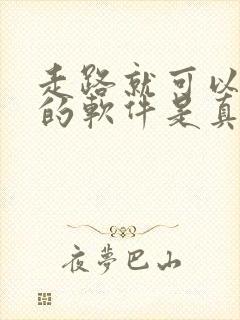 走路就可以
的軟件是真
夜夢巴山